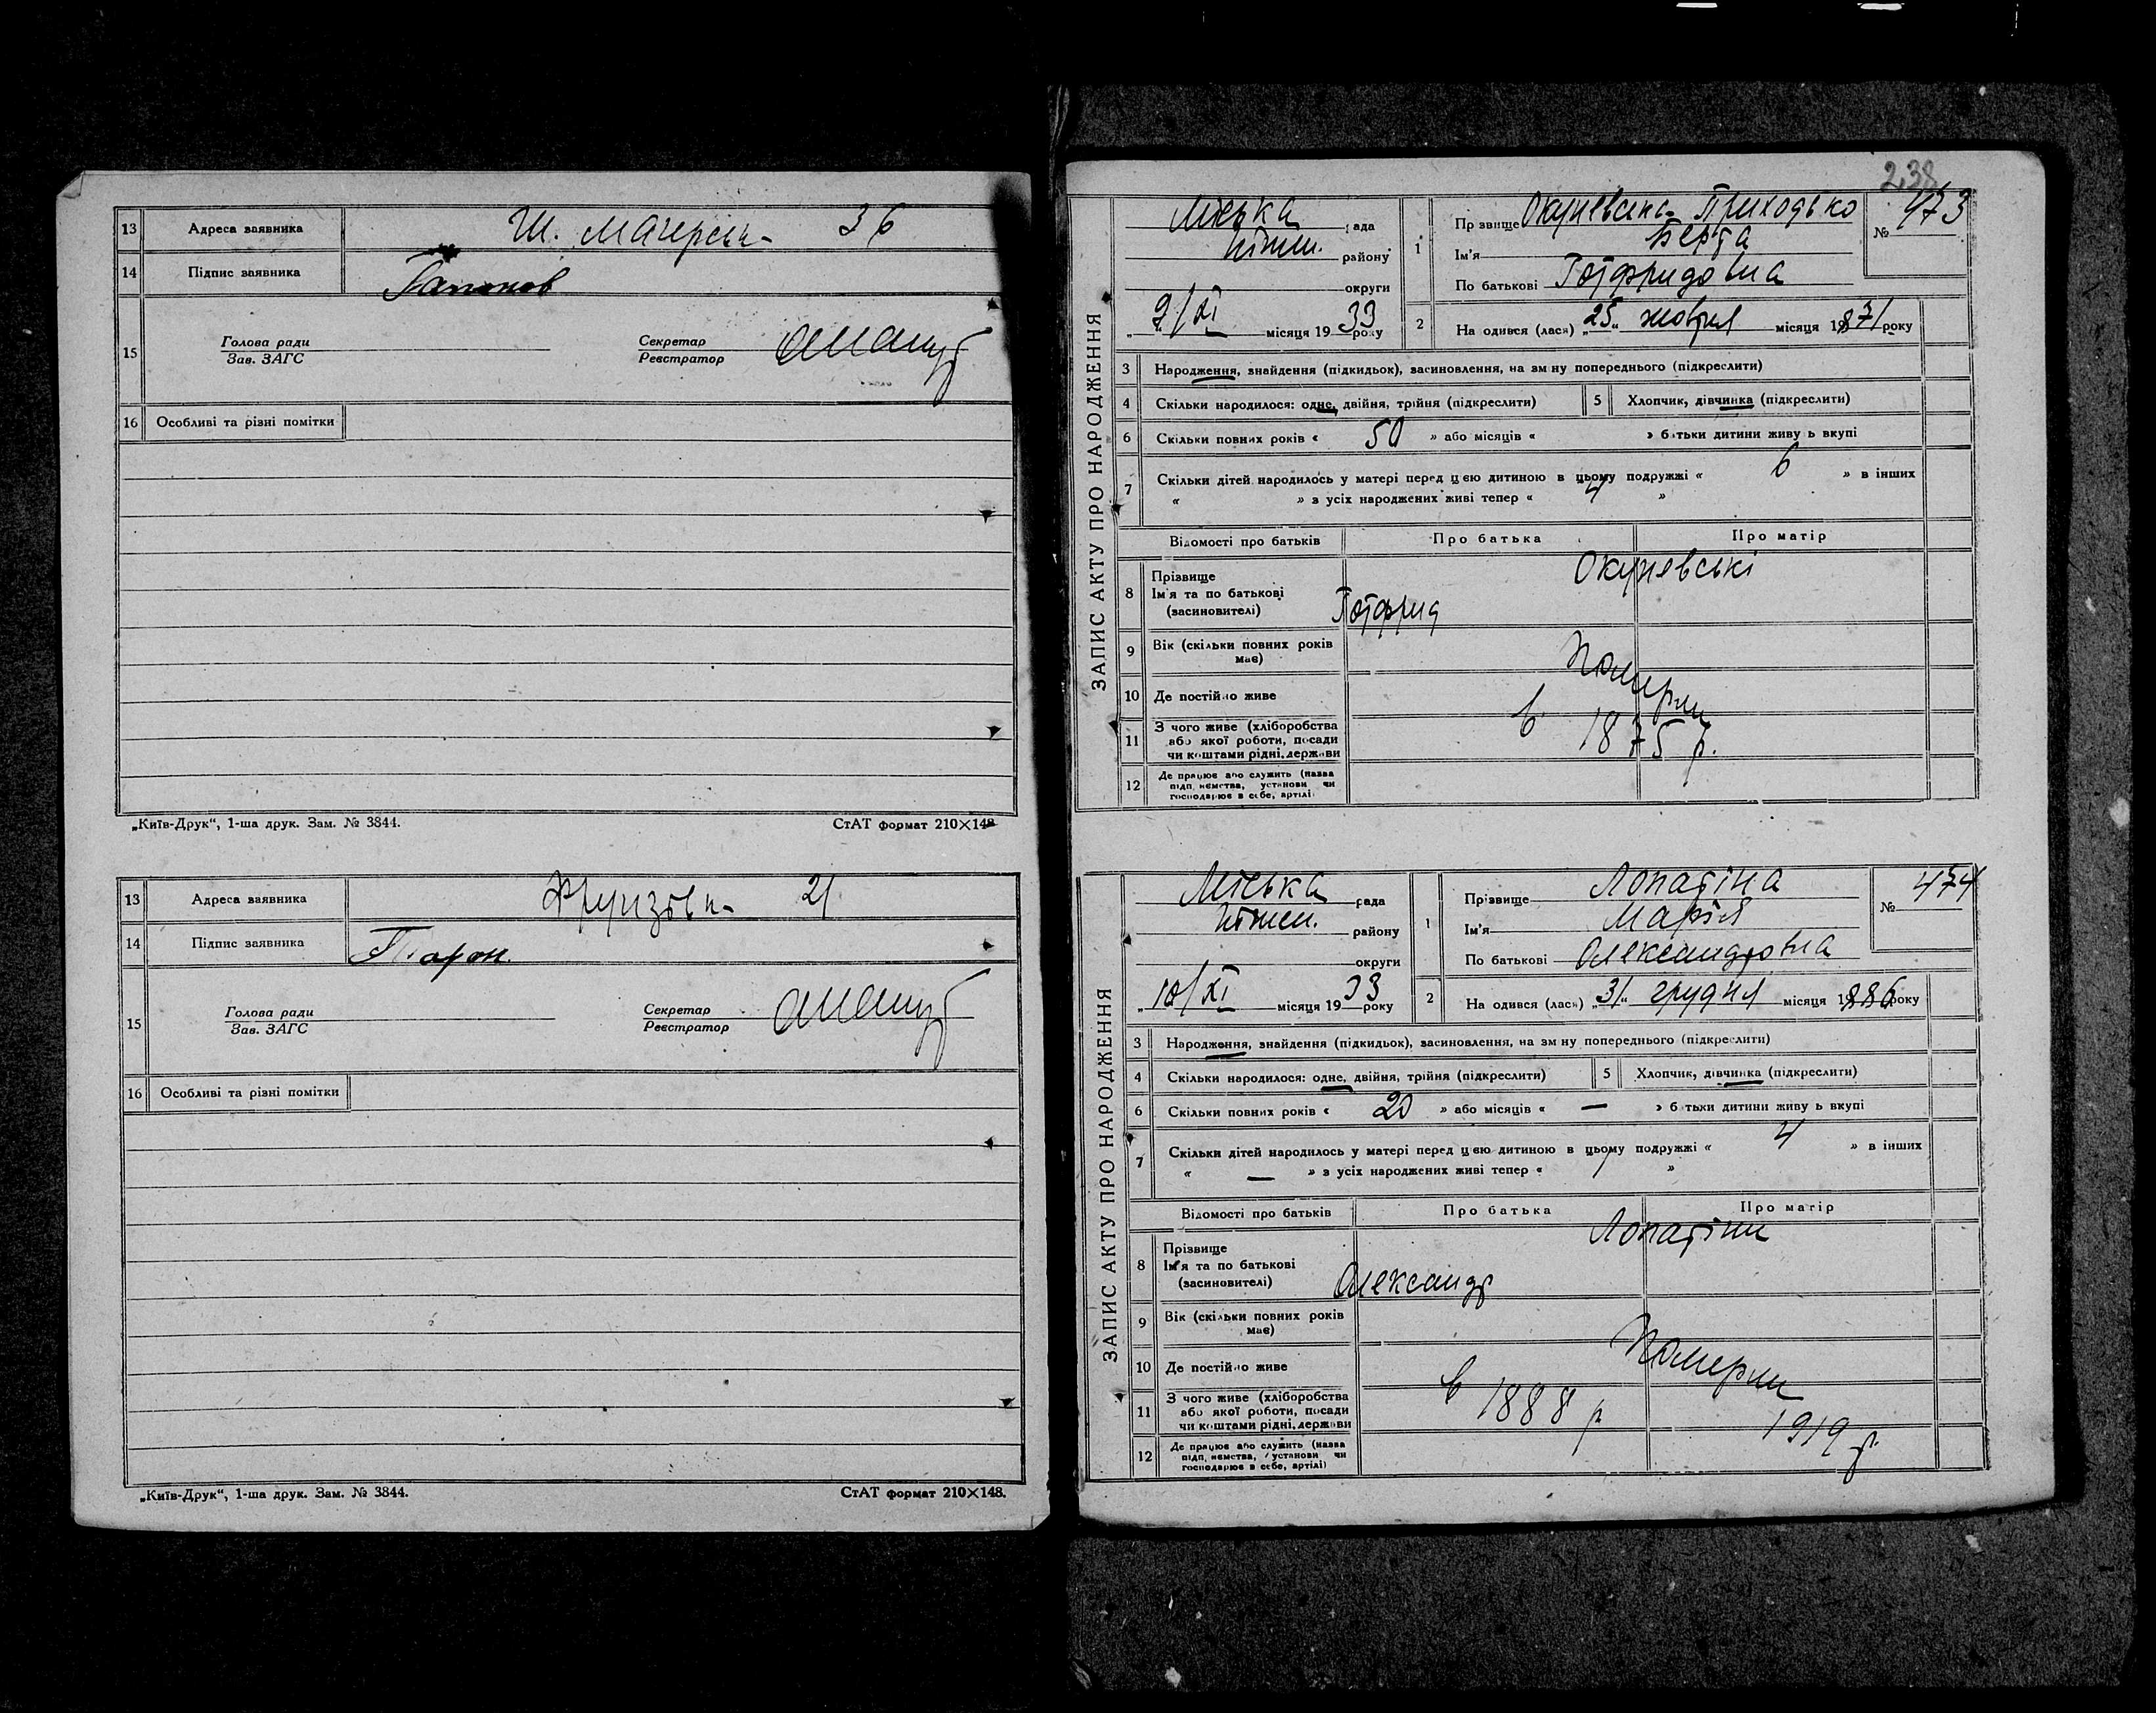 13 Адреса заявника Ш. Магерськ- 36
14 Підпис заявника
15 Голова ради Секретар
Зав. ЗАГС Реєстратор
16 Особливі та різні помітки
„Київ-Друк“, 1-ша друк. Зам. № 3844. СтАТ формат 210×148
13 Адреса заявника Фрунзівк- 21
14 Підпис заявника
15 Голова ради Секретар
Зав. ЗАГС Реєстратор
16 Особливі та різні помітки
„Київ-Друк“, 1-ша друк. Зам. № 3844. СтАТ формат 210×148.
238
ЗАПИС АКТУ ПРО НАРОДЖЕННЯ
Міська рада
району
округи
9/XI місяця 1933 року
1 Прізвище Приходько
Ім'я Берта
По батькові Готфридовна
№ 473
2 На одився (лась) „25“ жовтня місяця 1871 року
3 Народження, знайдення (підкидьок), засиновлення, на зм ну попереднього (підкреслити)
4 Скільки народилося: одне, двійня, трійня (підкреслити) 5 Хлопчик, дівчинка (підкреслити)
6 Скільки повних років « 50 » або місяців « » б тьки дитини живу ь вкупі
7 Скільки дітей народилось у матері перед цією дитиною в цьому подружжі « 6 » в інших
« » з усіх народжених живі тепер « 4 »
Відомості про батьків Про батька Про матір
8 Прізвище Окуневські
Ім'я та по батькові
(засиновителі) Готфрид
9 Вік (скільки повних років має) Померли
10 Де постійно живе
11 З чого живе (хліборобства або якої роботи, посади чи коштами рідні, держави в 1875 р.
12 Де працює або служить (назва підп, иємства, установи чи господарює в себе, артілі
ЗАПИС АКТУ ПРО НАРОДЖЕННЯ
Міська рада
району
округи
10/XI місяця 1933 року
1 Прізвище Лопатіна
Ім'я Марія
По батькові Олександровна
№ 474
2 На одився (лась) „31“ грудня місяця 1886 року
3 Народження, знайдення (підкидьок), засиновлення, на зм ну попереднього (підкреслити)
4 Скільки народилося: одне, двійня, трійня (підкреслити) 5 Хлопчик, дівчинка (підкреслити)
6 Скільки повних років « 20 » або місяців « — » б тьки дитини живу ь вкупі
7 Скільки дітей народилось у матері перед цією дитиною в цьому подружжі « 4 » в інших
« — » з усіх народжених живі тепер « 1 »
Відомості про батьків Про батька Про матір
8 Прізвище Лопатіни
Ім'я та по батькові
(засиновителі) Олександр
9 Вік (скільки повних років має)
10 Де постійно живе Померли
11 З чого живе (хліборобства або якої роботи, посади чи коштами рідні, держави в 1888 р 1919 р.
12 Де працює або служить (назва підп, иємства, установи чи господарює в себе, артілі)